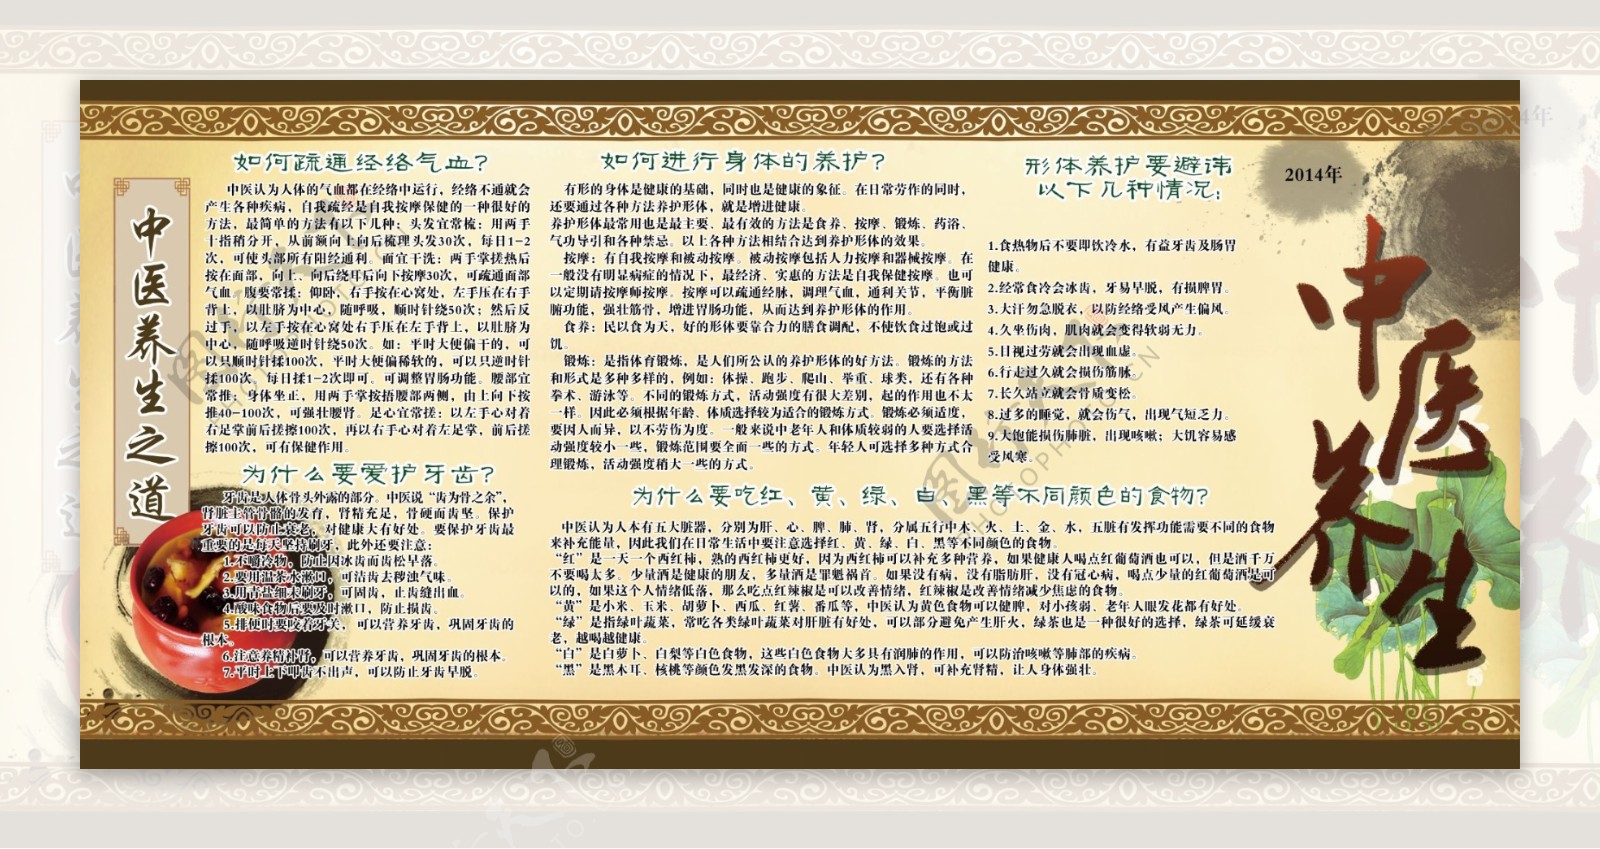 中医养生之道
如何疏通经络气血?
中医认为人体的气血都在经络中运行，经络不通就会
产生各种疾病，自我疏经是自我按摩保健的一种很好的
方法，最简单的方法有以下几种：头发宜常梳：用两手
十指稍分开，从前额向上向后梳理头发30次，每日1-2
次，可使头部所有阳经通利。面宜干洗：两手掌搓热后
按在面部，向上、向后绕耳后向下按摩30次，可疏通面部
气血。腹要常揉：仰卧，右手按在心窝处，左手压在右手
背上，以肚脐为中心，随呼吸，顺时针绕50次；然后反
过手，以左手按在心窝处右手压在左手背上，以肚脐为
中心，随呼吸逆时针绕50次。如：平时大便偏干的，可
以只顺时针揉100次，平时大便偏稀软的，可以只逆时针
揉100次，每日揉1-2次即可。可调整胃肠功能。腰部宜
常推：身体坐正，用两手掌按捂腰部两侧，由上向下按
推40-100次，可强壮腰肾。足心宜常搓：以左手心对着
右足掌前后搓擦100次，再以右手心对着左足掌，前后搓
擦100次，可有保健作用。
为什么要爱护牙齿?
牙齿是人体骨头外露的部分。中医说“齿为骨之余”，
肾脏主管骨骼的发育，肾精充足，骨硬而齿坚。保护
牙齿可以防止衰老，对健康大有好处。要保护牙齿最
重要的是每天坚持刷牙，此外还要注意：
1.不嚼冷物，防止因冰齿而齿松早落。
2.要用温茶水漱口，可洁齿去秽浊气味。
3.用青盐细末刷牙，可固齿，止齿缝出血。
4.酸味食物后要及时漱口，防止损齿。
5.排便时要咬着牙关，可以营养牙齿，巩固牙齿的
根本。
6.注意养精补肾，可以营养牙齿，巩固牙齿的根本。
7.平时上下叩齿不出声，可以防止牙齿早脱。
如何进行身体的养护?
有形的身体是健康的基础，同时也是健康的象征。在日常劳作的同时，
还要通过各种方法养护形体，就是增进健康。
养护形体最常用也是最主要、最有效的方法是食养、按摩、锻炼、药浴、
气功导引和各种禁忌。以上各种方法相结合达到养护形体的效果。
按摩：有自我按摩和被动按摩。被动按摩包括人力按摩和器械按摩。在
一般没有明显病症的情况下，最经济、实惠的方法是自我保健按摩。也可
以定期请按摩师按摩。按摩可以疏通经脉，调理气血，通利关节，平衡脏
腑功能，强壮筋骨，增进胃肠功能，从而达到养护形体的作用。
食养：民以食为天，好的形体要靠合力的膳食调配，不使饮食过饱或过
饥。
锻炼：是指体育锻炼，是人们所公认的养护形体的好方法。锻炼的方法
和形式是多种多样的，例如：体操、跑步、爬山、举重、球类，还有各种
拳术、游泳等。不同的锻炼方式，活动强度有很大差别，起的作用也不太
一样。因此必须根据年龄、体质选择较为适合的锻炼方式。锻炼必须适度，
要因人而异，以不劳伤为度。一般来说中老年人和体质较弱的人要选择活
动强度较小一些，锻炼范围要全面一些的方式。年轻人可选择多种方式合
理锻炼，活动强度稍大一些的方式。
形体养护要避讳
以下几种情况:
1.食热物后不要即饮冷水，有益牙齿及肠胃
健康。
2.经常食冷会冰齿，牙易早脱，有损脾胃。
3.大汗勿急脱衣，以防经络受风产生偏风。
4.久坐伤肉，肌肉就会变得软弱无力。
5.目视过劳就会出现血虚。
6.行走过久就会损伤筋脉。
7.长久站立就会骨质变松。
8.过多的睡觉，就会伤气，出现气短乏力。
9.大饱能损伤肺脏，出现咳嗽；大饥容易感
受风寒。
为什么要吃红、黄、绿、白、黑等不同颜色的食物?
中医认为人本有五大脏器，分别为肝、心、脾、肺、肾，分属五行中木、火、土、金、水，五脏有发挥功能需要不同的食物
来补充能量，因此我们在日常生活中要注意选择红、黄、绿、白、黑等不同颜色的食物。
“红”是一天一个西红柿，熟的西红柿更好，因为西红柿可以补充多种营养，如果健康人喝点红葡萄酒也可以，但是酒千万
不要喝太多。少量酒是健康的朋友，多量酒是罪魁祸首。如果没有病，没有脂肪肝，没有冠心病，喝点少量的红葡萄酒是可
以的，如果这个人情绪低落，那么吃点红辣椒是可以改善情绪，红辣椒是改善情绪减少焦虑的食物。
“黄”是小米、玉米、胡萝卜、西瓜、红薯、番瓜等，中医认为黄色食物可以健脾，对小孩弱、老年人眼发花都有好处。
“绿”是指绿叶蔬菜，常吃各类绿叶蔬菜对肝脏有好处，可以部分避免产生肝火，绿茶也是一种很好的选择，绿茶可延缓衰
老，越喝越健康。
“白”是白萝卜、白梨等白色食物，这些白色食物大多具有润肺的作用，可以防治咳嗽等肺部的疾病。
“黑”是黑木耳、核桃等颜色发黑发深的食物。中医认为黑入肾，可补充肾精，让人身体强壮。
2014年
中医养生